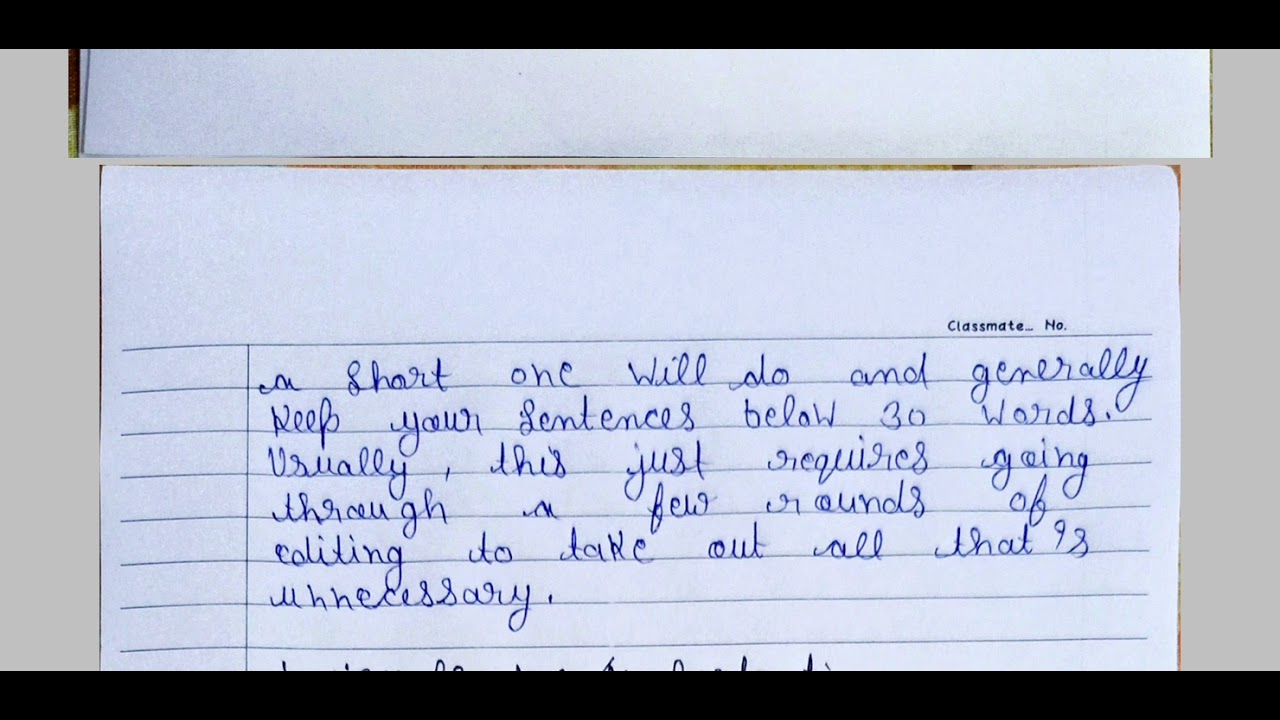 Classmate... No.
a short one will do and generally
keep your sentences below 30 words.
Usually, this just requires going
through a few rounds of
editing to take out all that is
unnecessary.